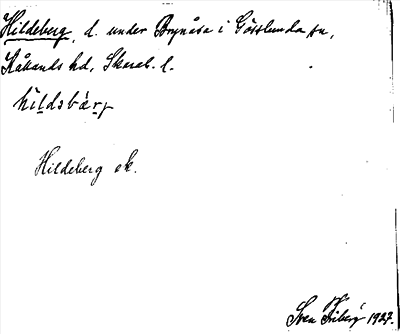 Hildeberg, l. under Brynåsa i Gösslunda sn,
Kållands hd, Skarab. l.
hìldsbár̥j
Hildeberg ek.
Sven Friberg 1927.